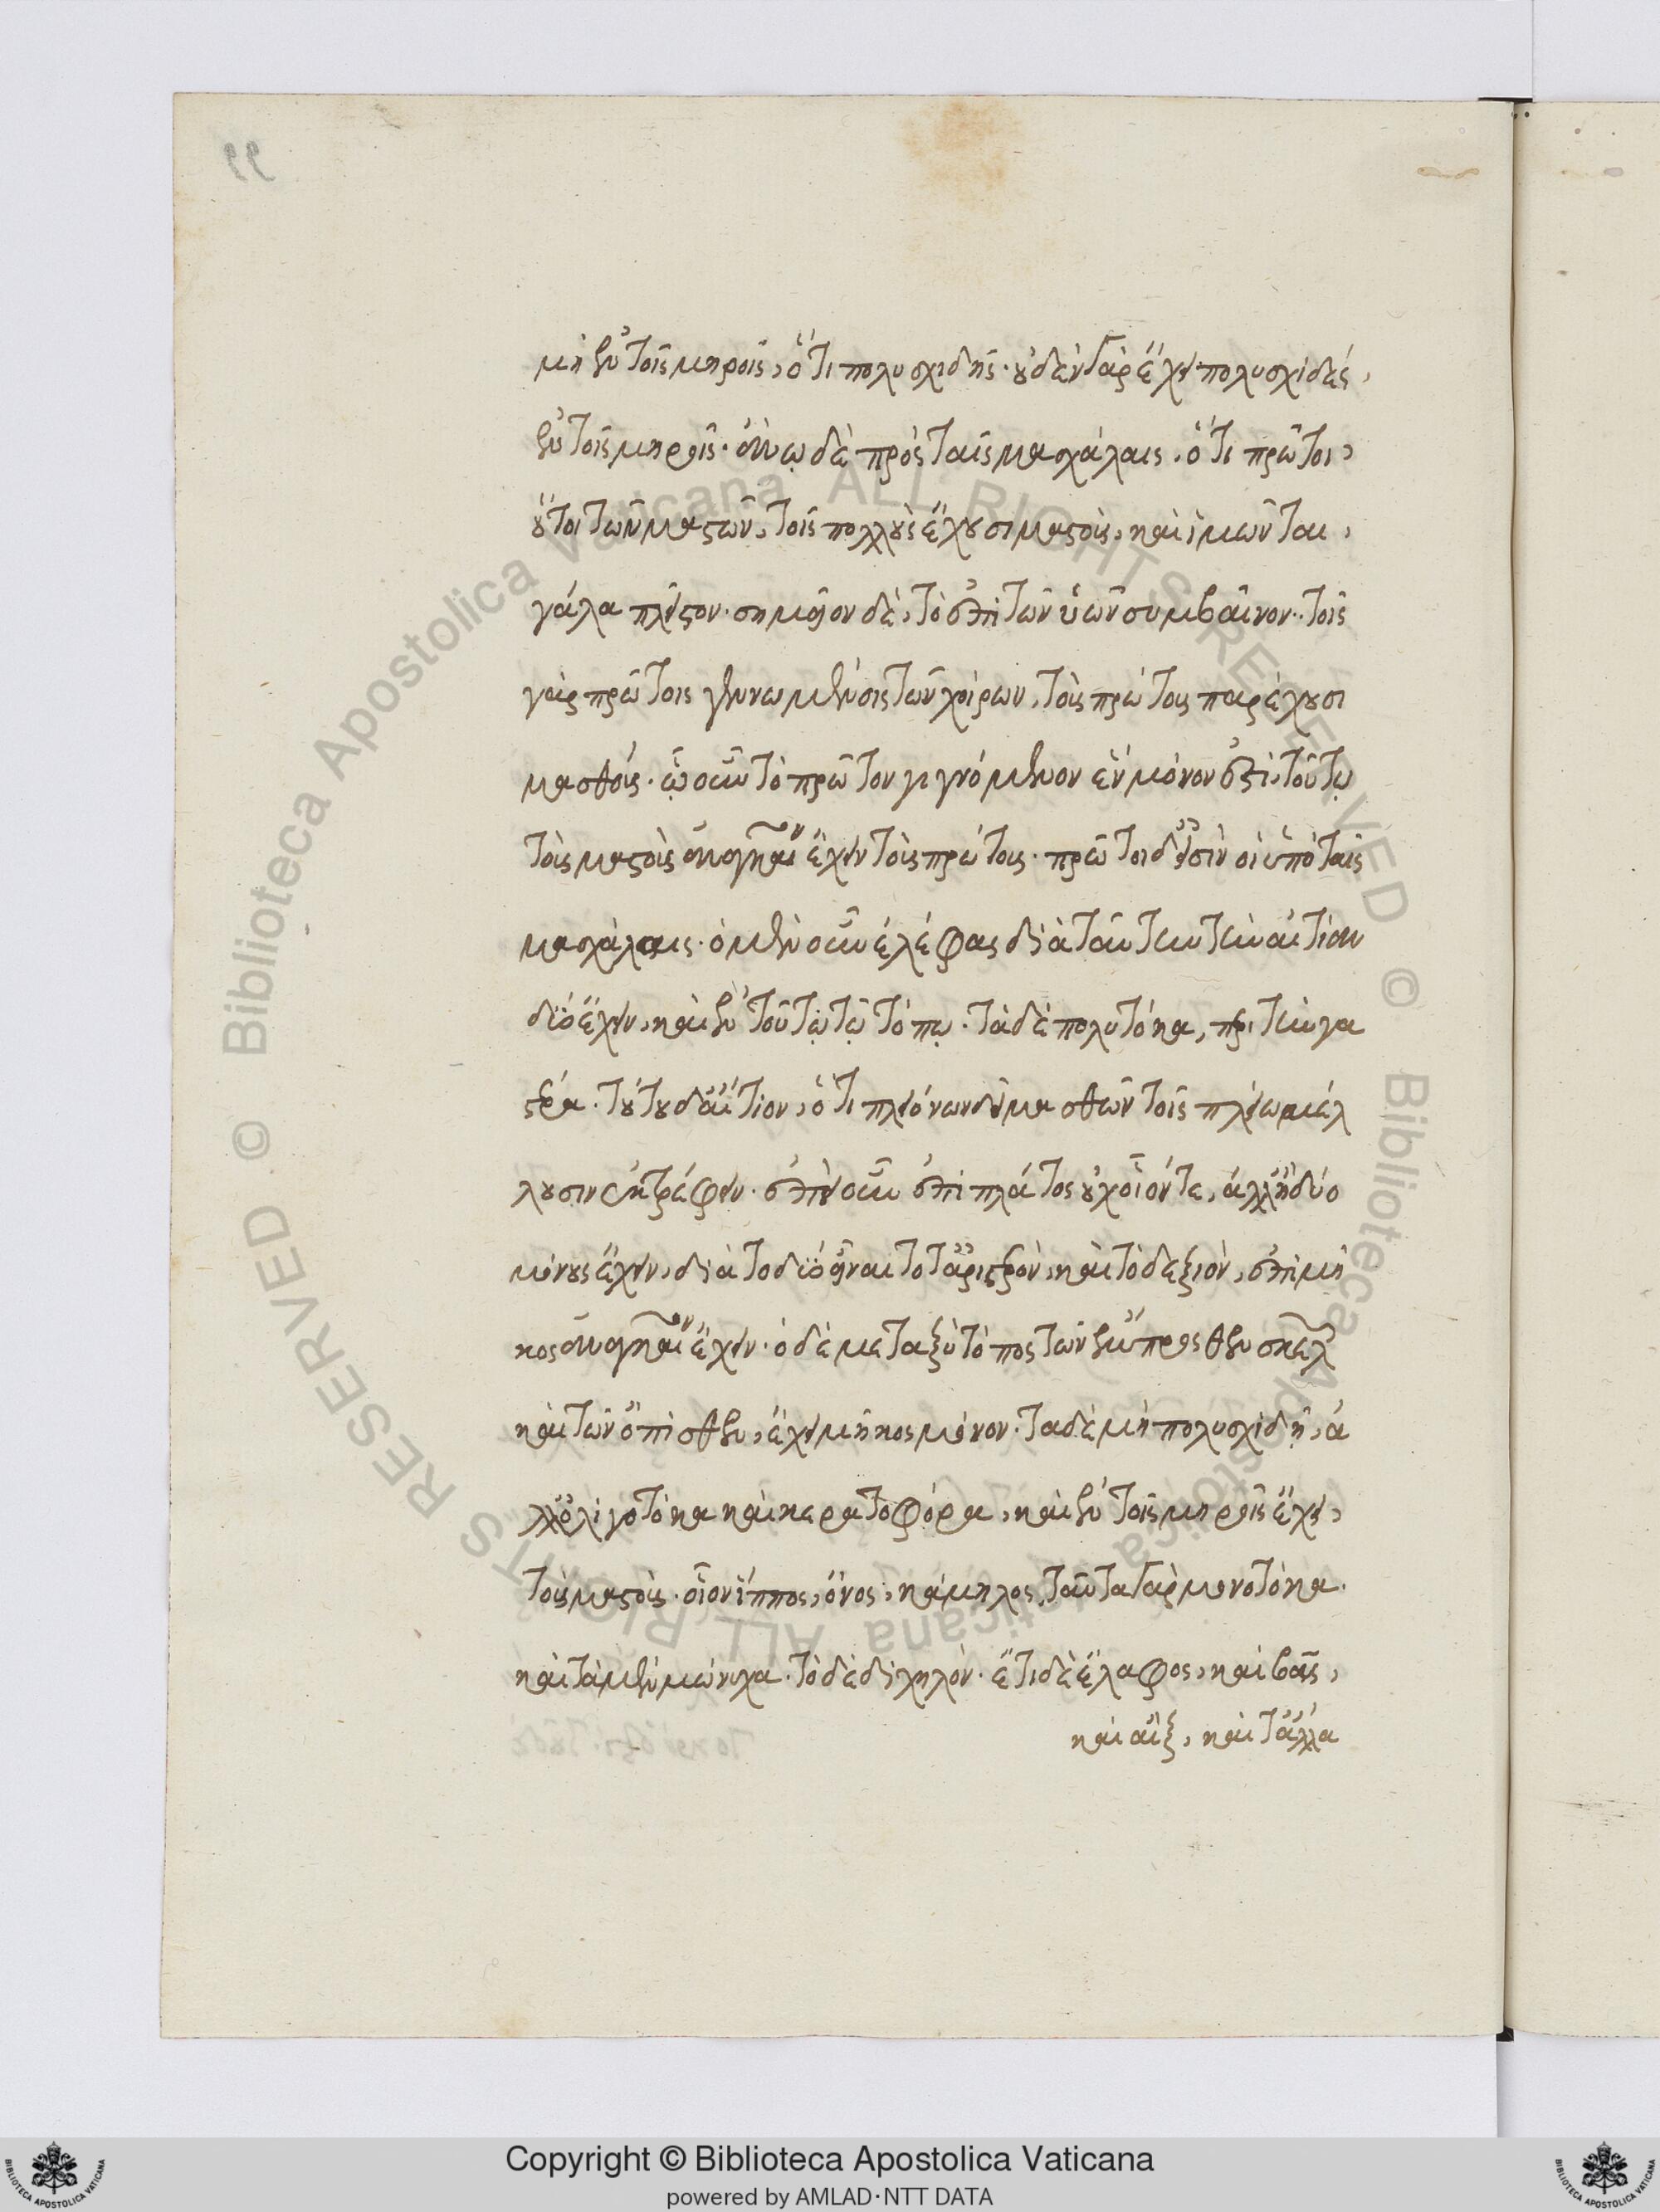 μὴ ἐν τοῖς μηροῖς, ὅτι πολυσχιδής· οὐδὲν γὰρ ἔχει πολυσχιδές,
ἐν τοῖς μηροῖς. ἄνω δὲ πρὸς ταῖς μασχάλαις, ὅτι πρῶτοι,
οὗτοι τῶν μαστῶν, τοῖς πολλοὺς ἔχουσι μαστοὺς, καὶ ἱμῶνται,
γάλα πλεῖστον. σημεῖον δὲ, τὸ ἐπὶ τῶν ὑῶν συμβαῖνον· τοῖς
γὰρ πρώτοις γενομένοις τῶν χοίρων, τοὺς πρώτους παρέχουσι
μασθούς. ᾧ οὖν τὸ πρῶτον γιγνόμενον ἓν μόνον ἐστὶ, τούτῳ
τοὺς μαστοὺς ἀναγκαῖον ἔχειν τοὺς πρώτους. πρῶτοι δ' εἰσὶν οἱ ὑπὸ ταῖς
μασχάλαις. ὁ μὲν οὖν ἐλέφας διὰ ταύτην τὴν αἰτίαν
δύο ἔχει, καὶ ἐν τούτῳ τῷ τόπῳ. τὰ δὲ πολυτόκα, περὶ τὴν γα
στέρα. τούτου δ' αἴτιον, ὅτι πλειόνων δεῖ μασθῶν τοῖς πλείω μέλ
λουσιν ἐκτρέφειν. ἐπεὶ οὖν ἐπὶ πλάτος οὐχ οἷόν τε, ἀλλ' ἢ δύο
μόνους ἔχειν, διὰ τὸ δύο εἶναι τό τ' ἀριστερὸν, καὶ τὸ δεξιὸν, ἐπὶ μῆ
κος ἀναγκαῖον ἔχειν. ὁ δὲ μεταξὺ τόπος τῶν ἔμπροσθεν σκελ
καὶ τῶν ὄπισθεν, ἔχει μῆκος μόνον. τὰ δὲ μὴ πολυσχιδῆ, ἀ
λλ' ὀλιγοτόκα καὶ κερατοφόρα, καὶ ἐν τοῖς μηροῖς ἔχει,
τοὺς μαστούς. οἷον ἵππος, ὄνος, κάμηλος, ταῦτα γὰρ μονοτόκα.
καὶ τὰ μὲν μώνυχα. τὸ δὲ διχηλόν. ἔτι δὲ ἔλαφος, καὶ βοῦς,
καὶ αἲξ, καὶ τἄλλα